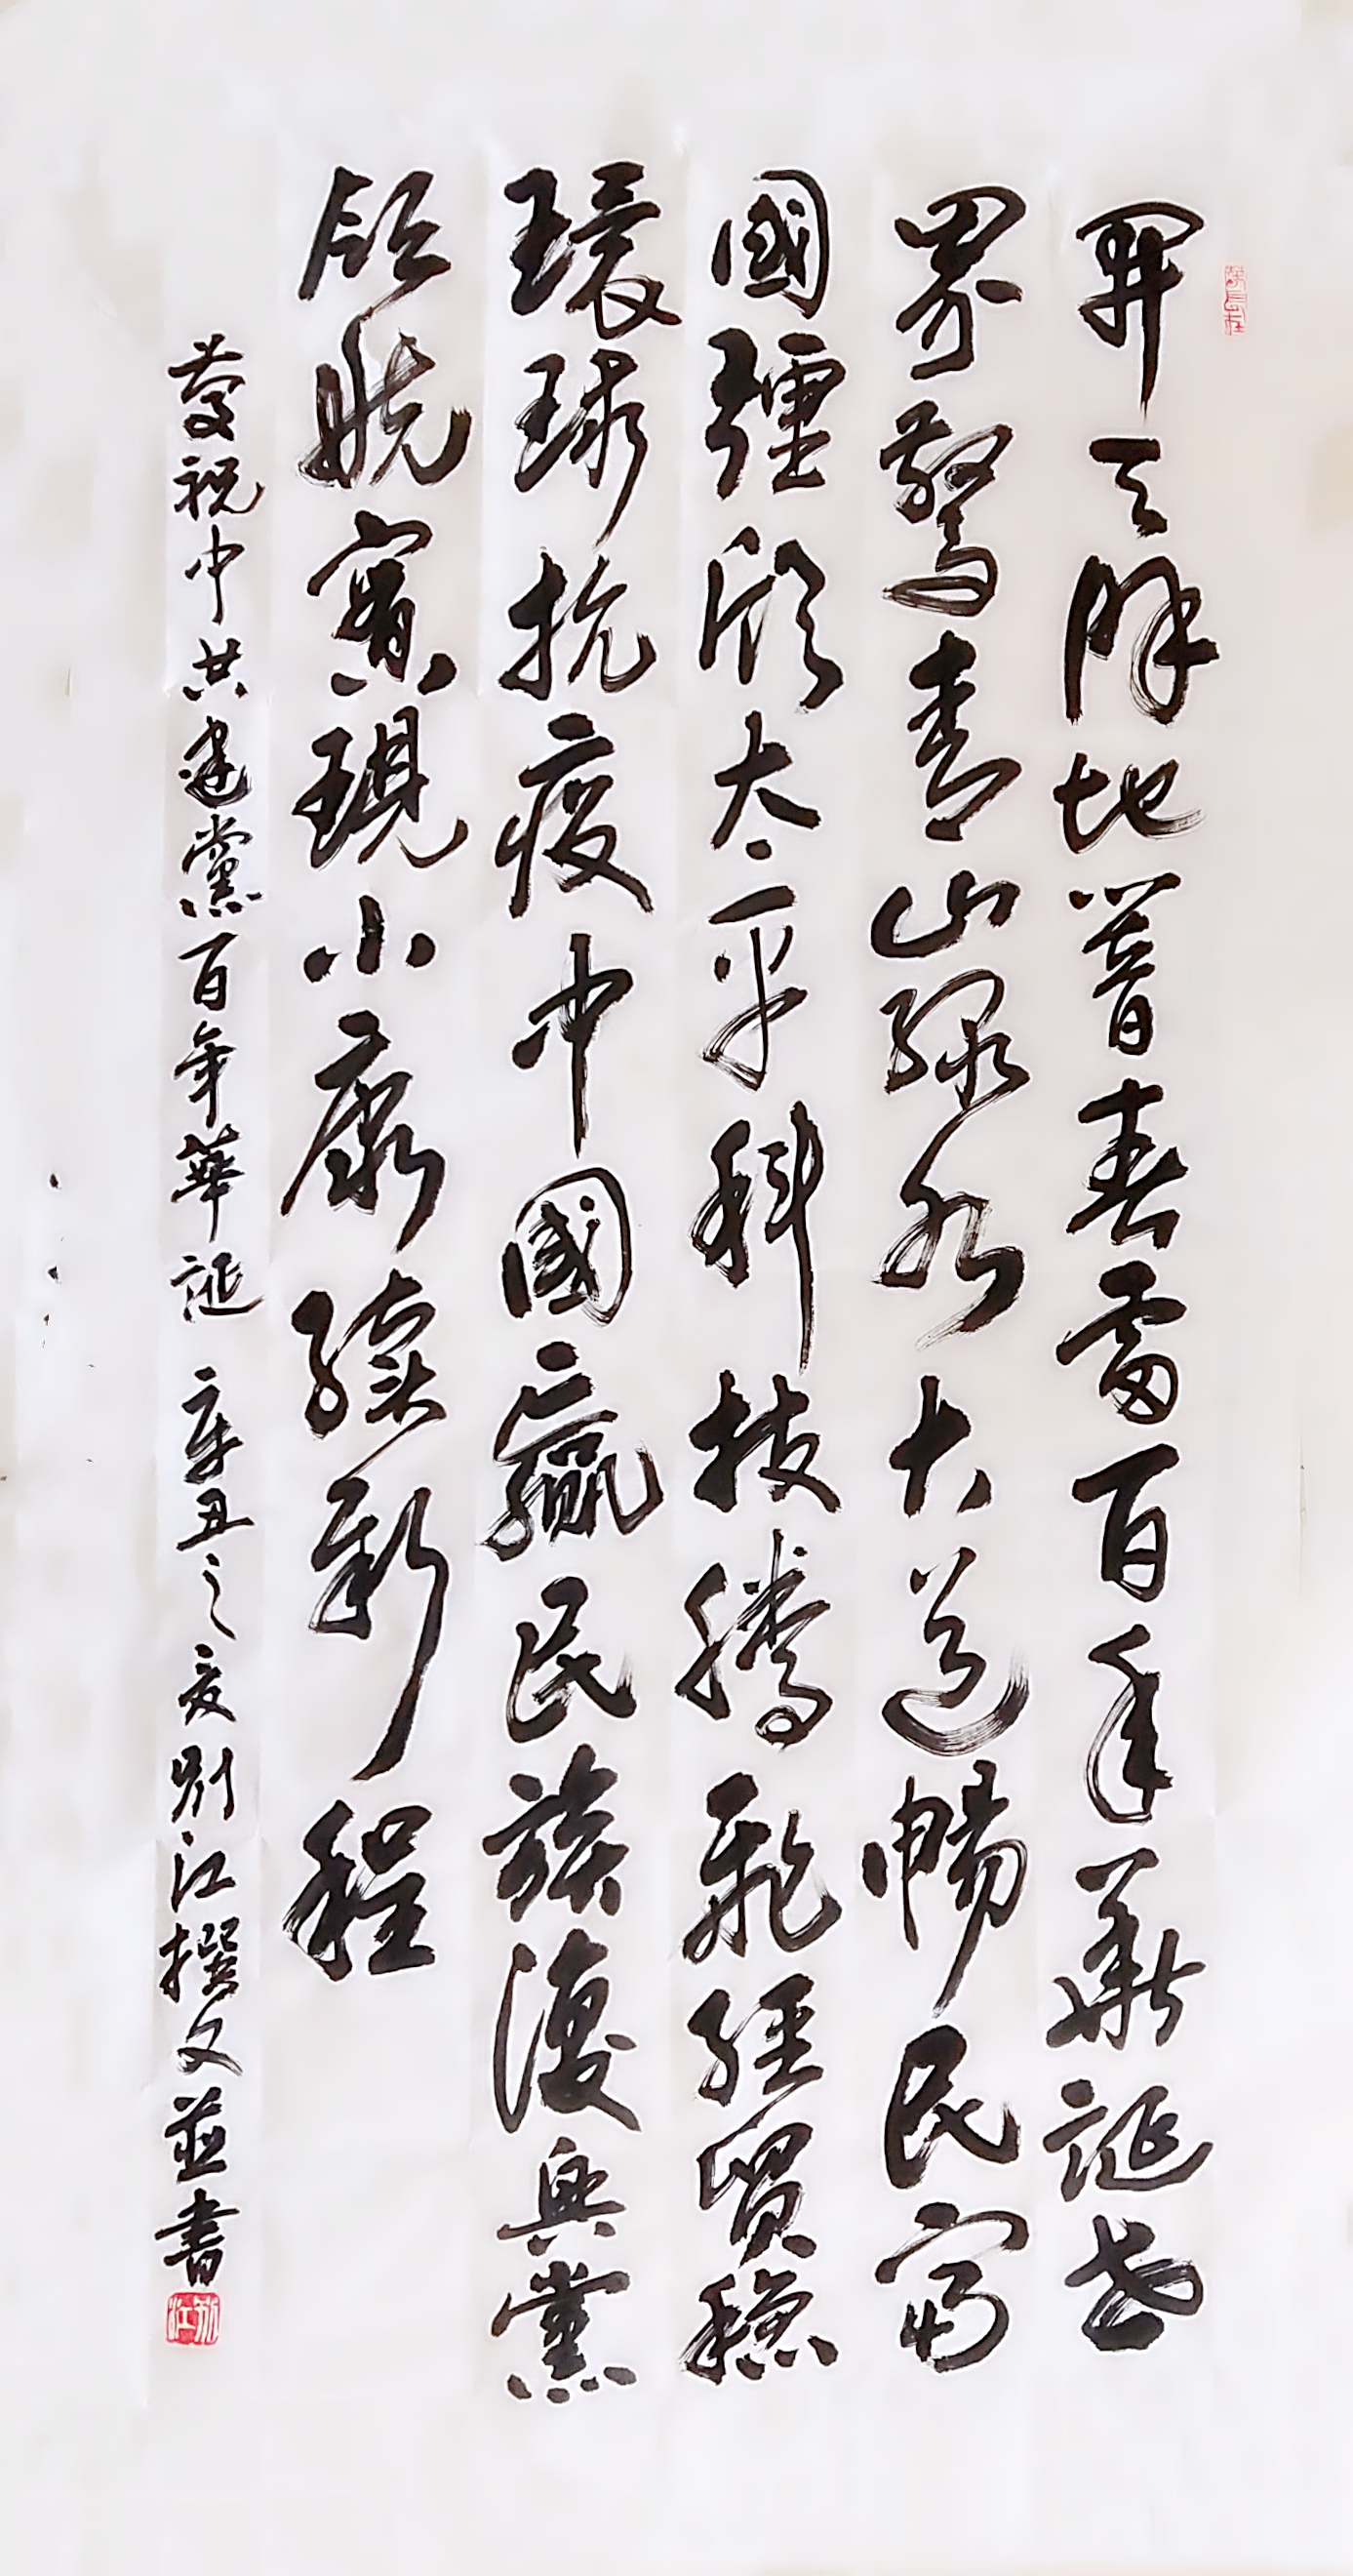 開天辟地普春雷百年華誕世
界驚青山綠水大道暢民富
國強欣太平科技騰飛經貿穩
環球抗疫中國贏民族復興黨
領航實現小康續新程
慶祝中共建黨百年華誕 辛丑之夏別江撰文並書
別江